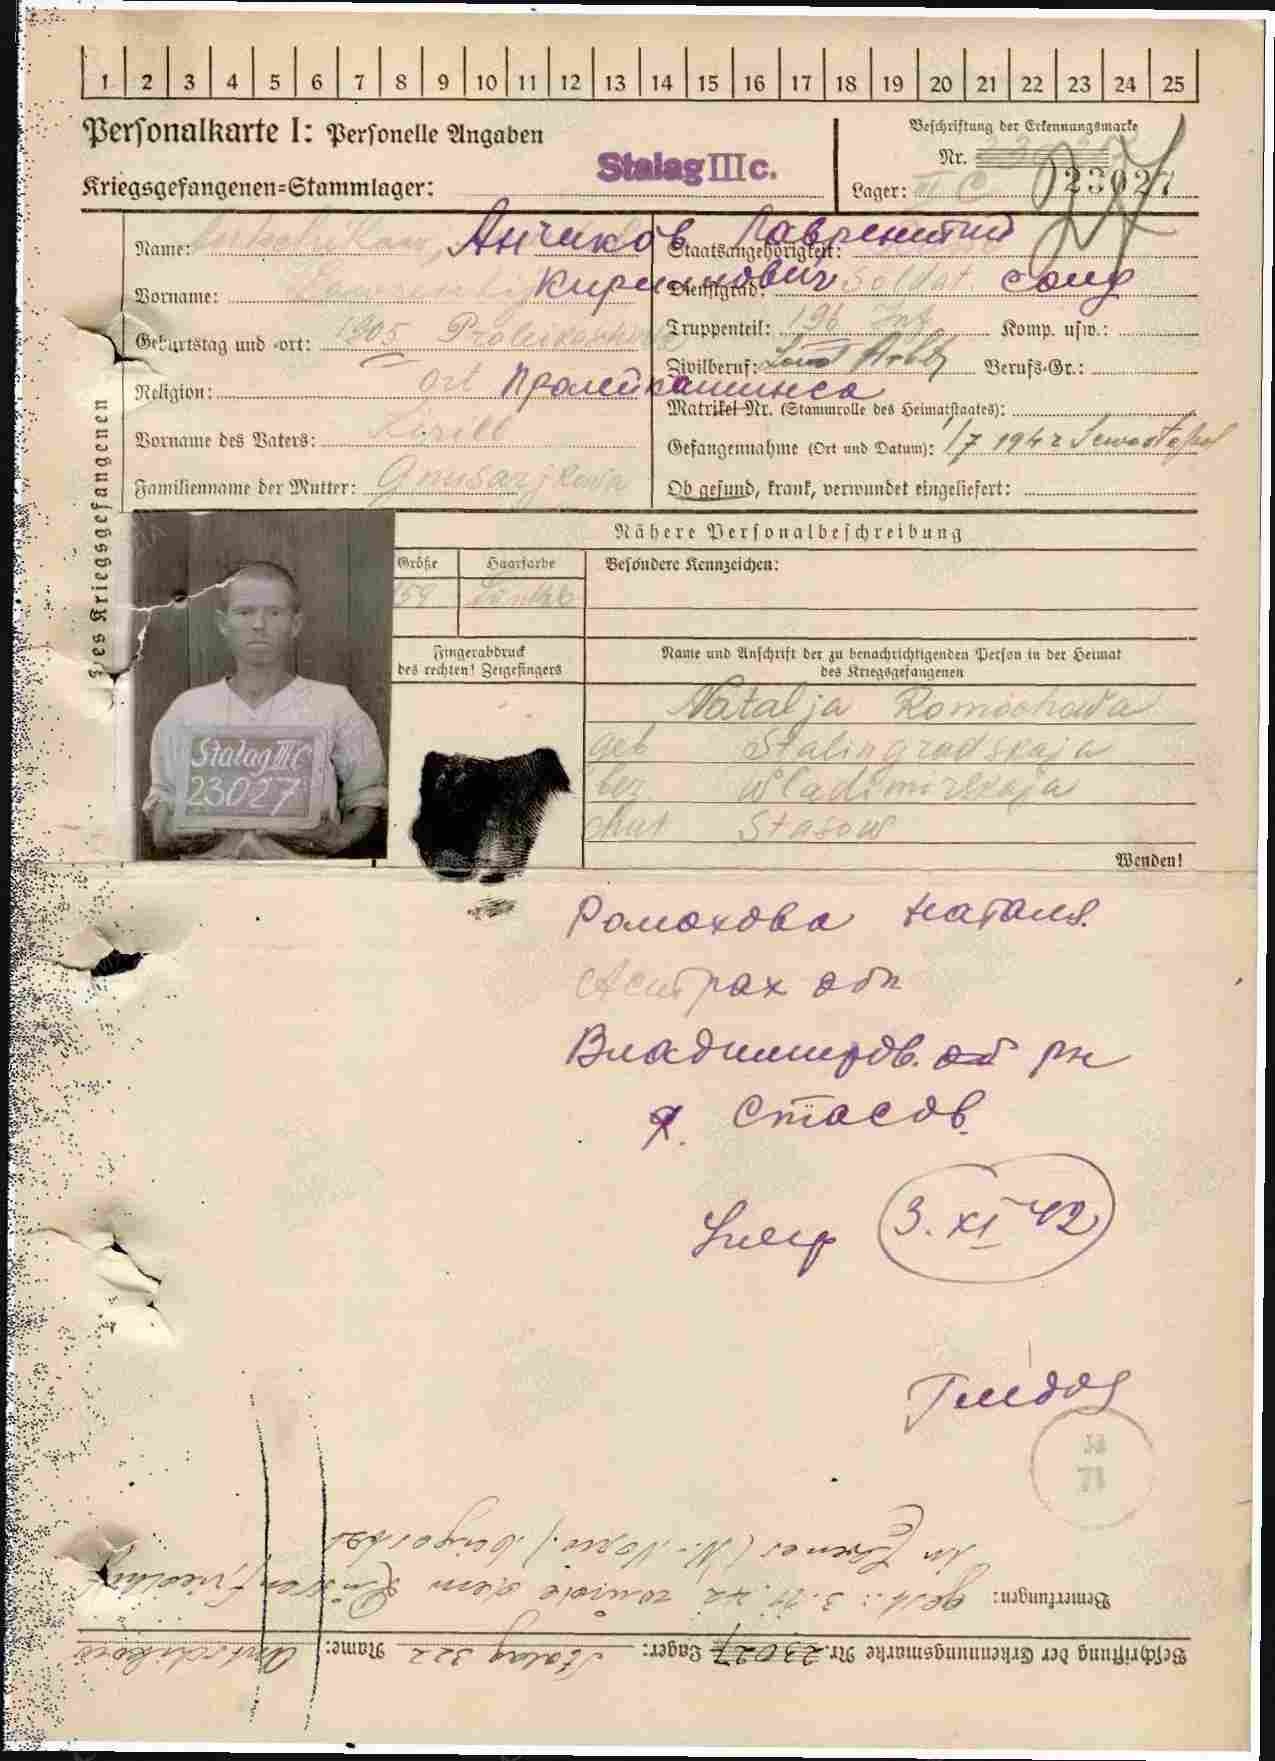 1 2 3 4 5 6 7 8 9 10 11 12 13 14 15 16 17 18 19 20 21 22 23 24 25
Personalkarte I: Personelle Angaben
Beschriftung der Erkennungsmarke
Nr.
Stalag III c.
23027
Kriegsgefangenen=Stammlager:
Lager: III C
Name: Анчиков Лаврентий
Staatsangehörigkeit:
Vorname: Кириллович
Dienstgrad: Soldat солд
Geburtstag und -ort: 1905 Proleikaskowo
Truppenteil: 196 Inf Komp. usw.:
Zivilberuf: Land Arb Berufs-Gr.:
Religion: ort Пролейкашинса
Matrikel Nr. (Stammrolle des Heimatstaates):
Vorname des Vaters: Kirill
Gefangennahme (Ort und Datum): 1/7 1942 Sewastopol
Familienname der Mutter: Gnusarjkowa
Ob gesund, krank, verwundet eingeliefert:
Des Kriegsgefangenen
Nähere Personalbeschreibung
Größe Haarfarbe Besondere Kennzeichen:
159 Dunkel
Fingerabdruck
des rechten! Zeigefingers
Name und Anschrift der zu benachrichtigenden Person in der Heimat
des Kriegsgefangenen
Natalja Romochowa
geb Stalingradskaja
bez. Wladimirskaja
chut Stasow
Stalag III C
23027
Wenden!
Ромохова Наталя.
Астрах обл
Владимиров. об рн
х. Стасов.
Умер 3.XI 42
38
71
Beschriftung der Erkennungsmarke Nr. 23027 Lager: Stalag 322 Name: Antschikow
Bemerkungen: gest.: 3.11.42 wurde dem Russenfriedhof
in Lorenes (N.-Norw.) beigesetzt